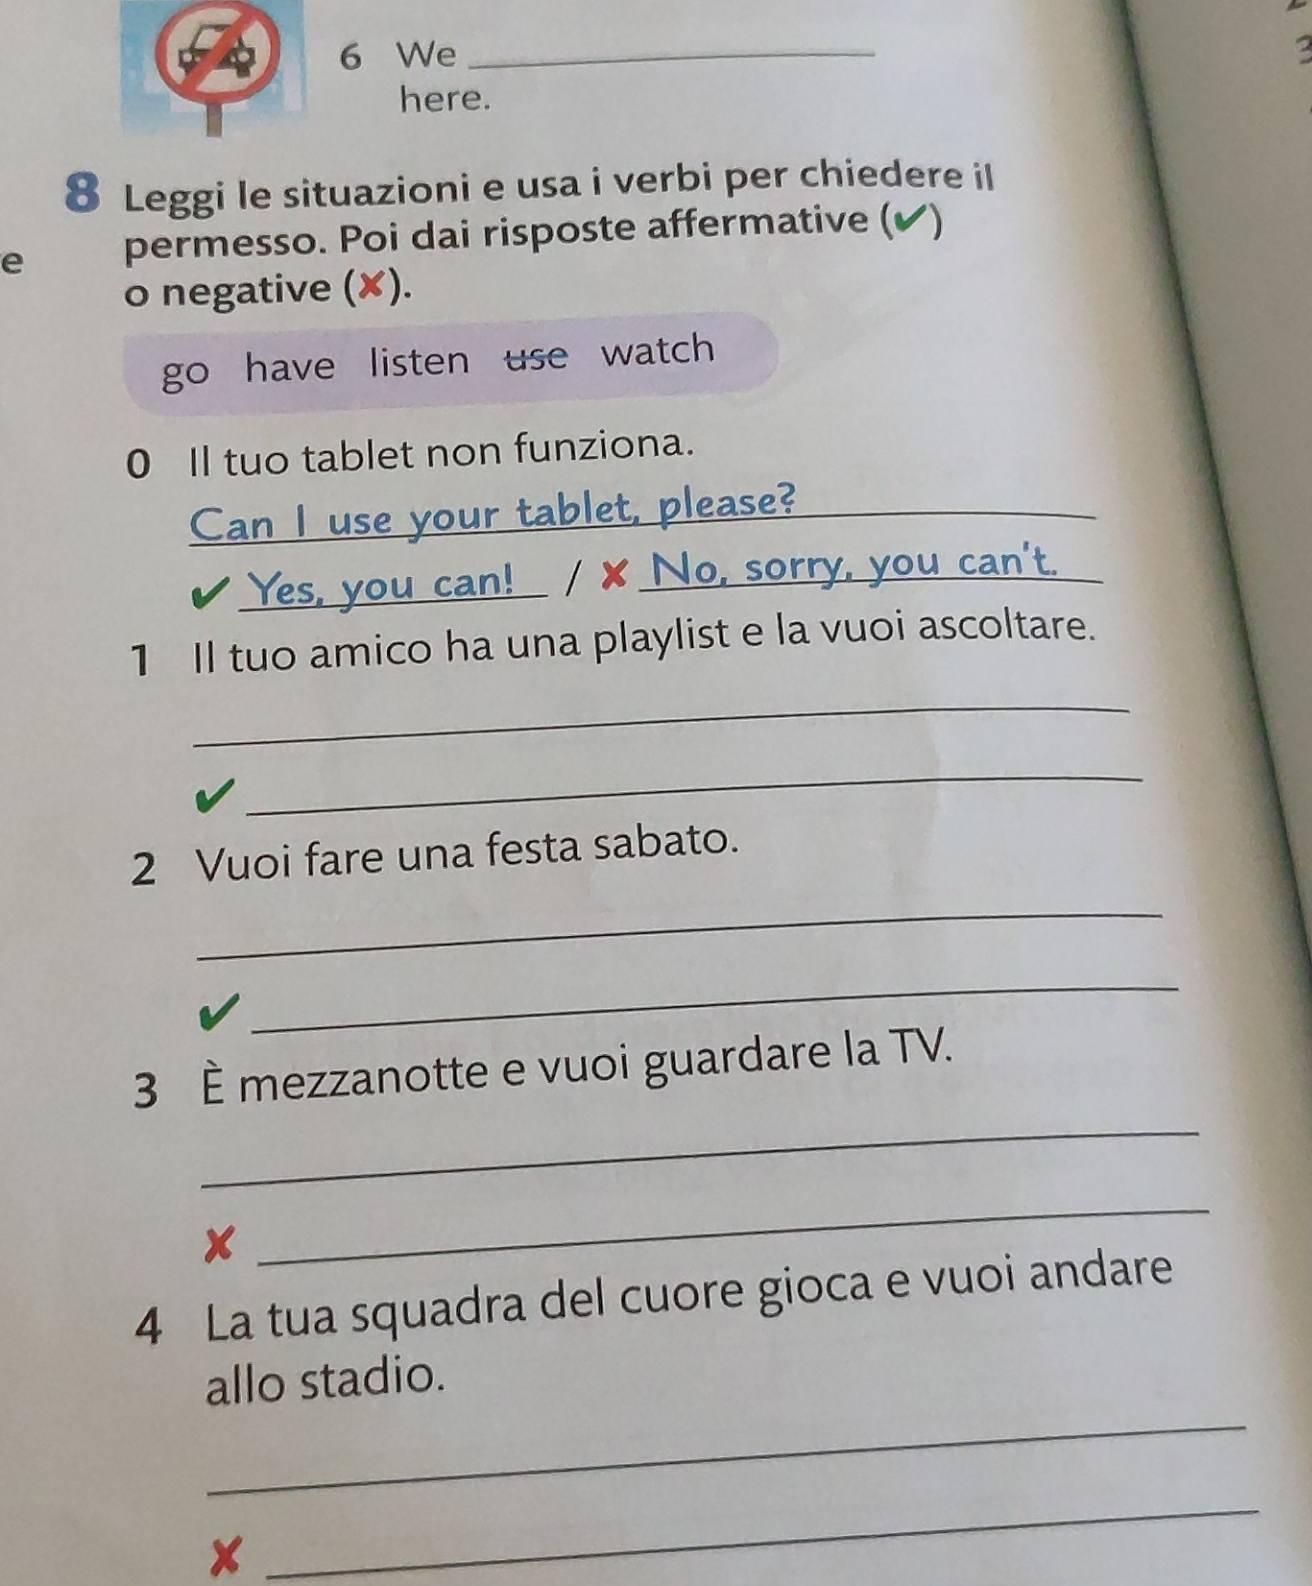 6 We ____________
here.
8 Leggi le situazioni e usa i verbi per chiedere il
permesso. Poi dai risposte affermative (✔)
o negative (✘).
go have listen use watch
0 Il tuo tablet non funziona.
Can I use your tablet, please?
✔ Yes, you can! / ✘ No, sorry, you can't.
1 Il tuo amico ha una playlist e la vuoi ascoltare.
✔
2 Vuoi fare una festa sabato.
✔
3 È mezzanotte e vuoi guardare la TV.
✘
4 La tua squadra del cuore gioca e vuoi andare
allo stadio.
✘
e
3